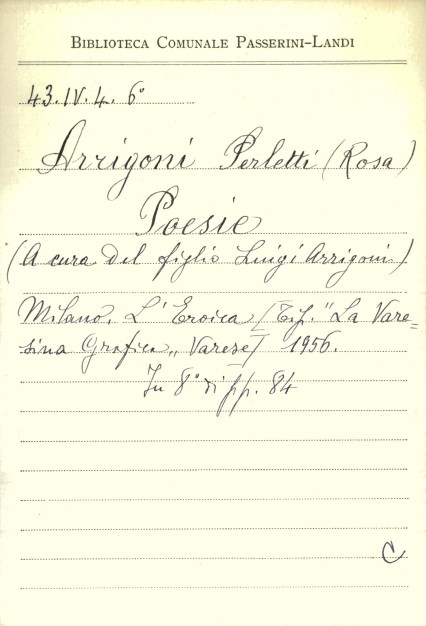 BIBLIOTECA COMUNALE PASSERINI-LANDI
43.IV.4. 6°
Arrigoni Perletti (Rosa)
Poesie
(A cura del figlio Luigi Arrigoni)
Milano, L'Eroica [Tip. "La Vare=
sina Grafica„ Varese] 1956.
In 8° di pp. 84
C